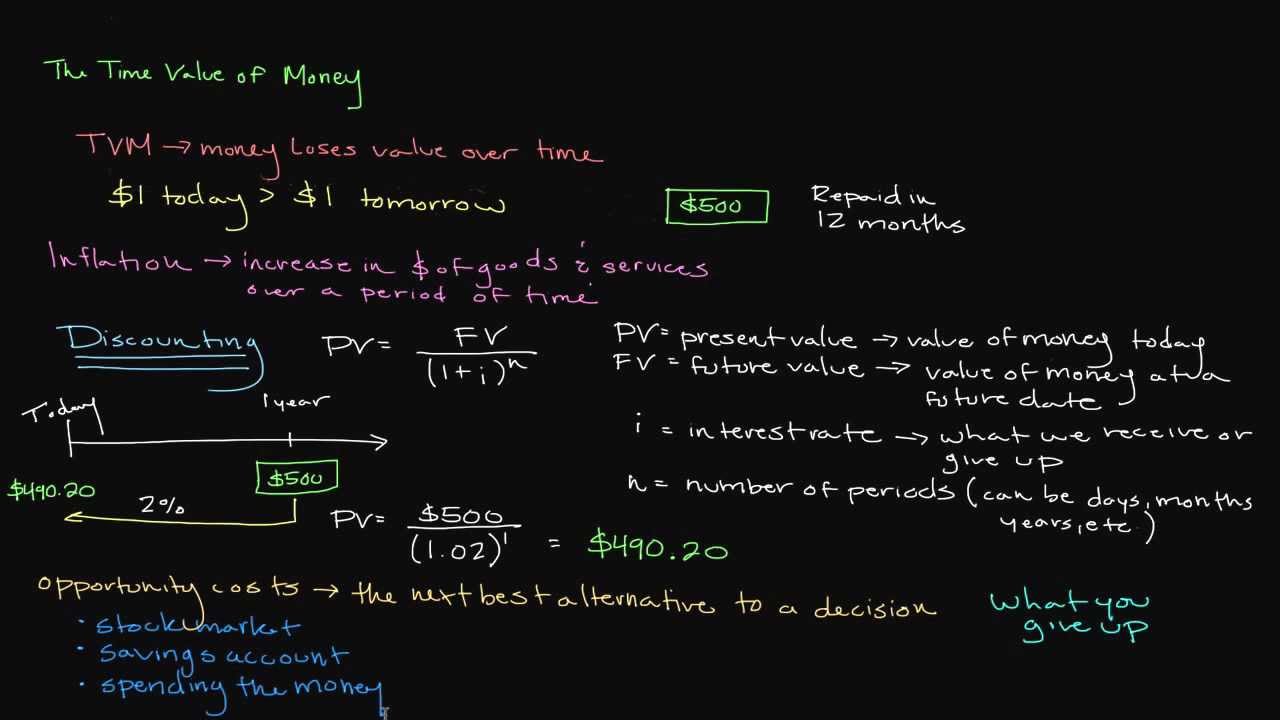 The Time Value of Money
TVM → money loses value over time
$1 today > $1 tomorrow
$500
Repaid in
12 months
Inflation → increase in $ of goods & services
over a period of time
Discounting
PV = FV / (1 + i)^n
PV = present value → value of money today
FV = future value → value of money at a
future date
i = interest rate → what we receive or
give up
n = number of periods (can be days, months
years, etc.)
Today
1 year
$490.20
2%
$500
PV = $500 / (1.02)^1 = $490.20
opportunity costs → the next best alternative to a decision
what you
give up
· stock market
· savings account
· spending the money